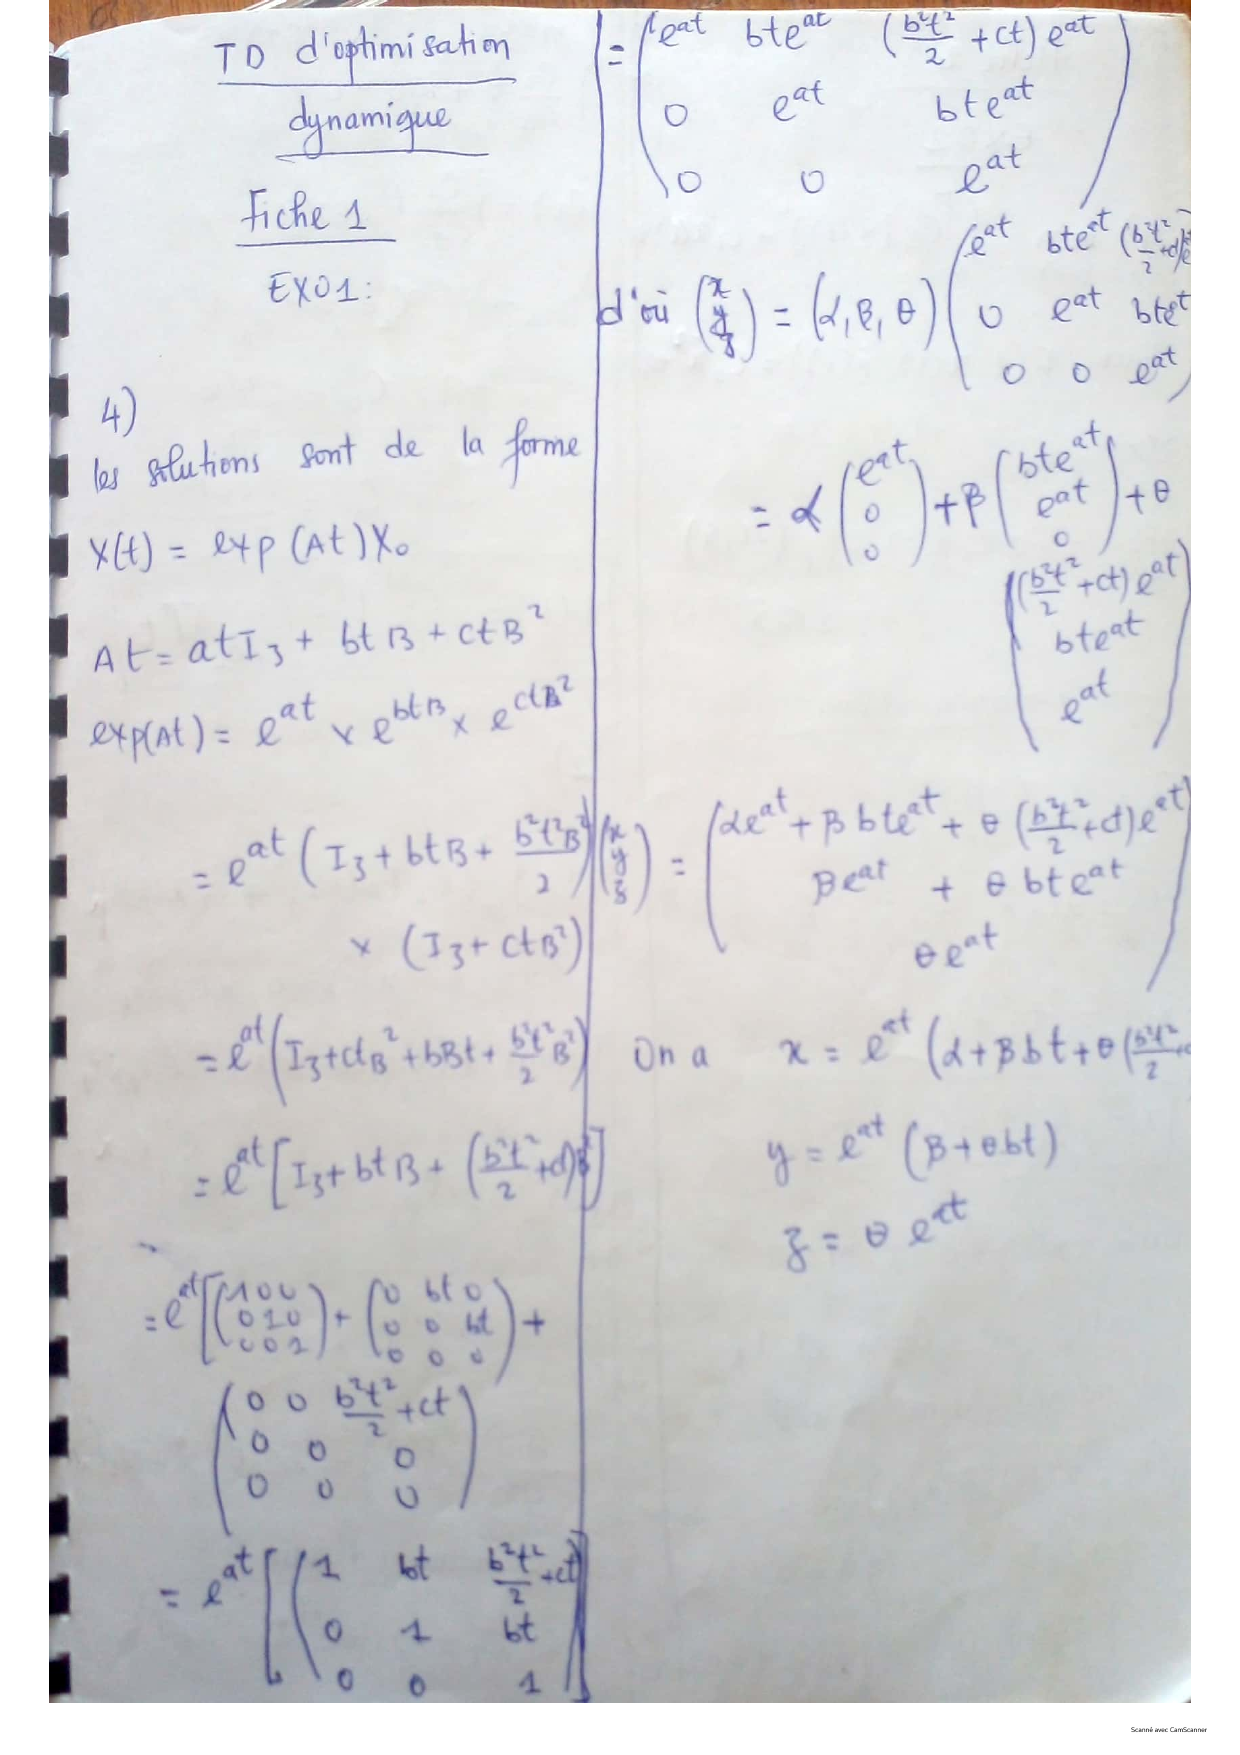 TD d'optimisation
dynamique
Fiche 1
EXO1:
4)
les solutions sont de la forme
X(t) = exp(At)X₀
At = atI₃ + btB + ctB²
exp(At) = e^{at} × e^{btB} × e^{ctB²}
= e^{at} (I₃ + btB + b²t²B²/2)
× (I₃ + ctB²)
= e^{at} (I₃ + ctB² + bBt + b²t²/2 B²)
= e^{at} [I₃ + btB + (b²t²/2 + ct)B²]
= e^{at} [(1 0 0
0 1 0
0 0 1) + (0 bt 0
0 0 bt
0 0 0) +
(0 0 b²t²/2 + ct
0 0 0
0 0 0)
= e^{at} [(1 bt b²t²/2 + ct
0 1 bt
0 0 1)]
= (e^{at} bte^{at} (b²t²/2 + ct) e^{at}
0 e^{at} bte^{at}
0 0 e^{at})
d'où (x y z) = (α, β, θ) (e^{at} bte^{at} (b²t²/2 + ct)e
0 e^{at} bte^{t}
0 0 e^{at})
= α (e^{at} 0 0) + β (bte^{at} e^{at} 0) + θ
((b²t²/2 + ct) e^{at}
bte^{at}
e^{at})
(x y z) = (αe^{at} + β bte^{at} + θ (b²t²/2 + ct)e^{at}
βe^{at} + θ bte^{at}
θe^{at})
On a x = e^{at} (α + βbt + θ(b²t²/2 +
y = e^{at} (β + θbt)
z = θ e^{at}
Scanné avec CamScanner